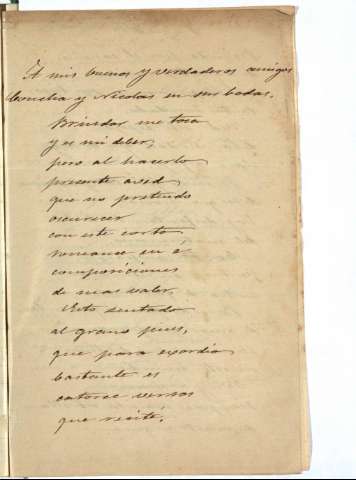 A mis buenos y verdaderos amigos
Concha y Nicolas en sus bodas.
Brindar me toca
y es mi deber,
pero al hacerlo
presente aved
que no pretendo
oscurecer
con este corto
romance en é
composiciones
de mas valer,
Esto sentado
al grano pues,
que para exordio
bastante es
catorce versos
que recité.